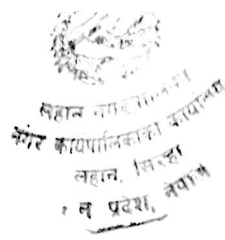 लहान नगरपालिका
नगर कार्यपालिकाको कार्यालय
लहान, सिरहा
प्रदेश, नेपाल